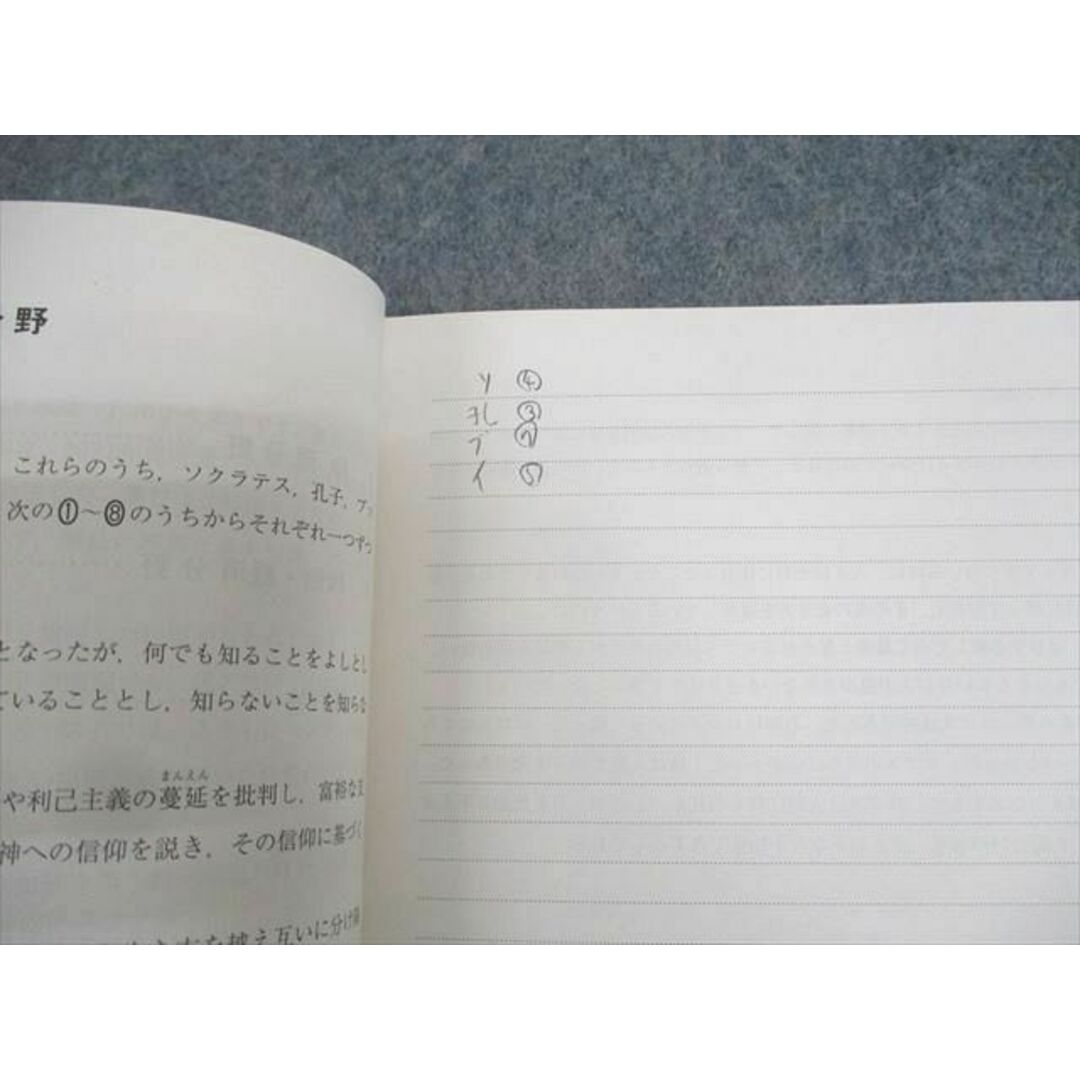 野
これらのうち，ソクラテス，孔子，ブッ
次の①～⑧のうちからそれぞれ一つずつ
となったが，何でも知ることをよしとし
ていることとし，知らないことを知らな
や利己主義の蔓延を批判し，富裕な
まんえん
神への信仰を説き，その信仰に基づく
を越え互いに分け隔
ソ ④
孔 ③
ブ
イ ⑤